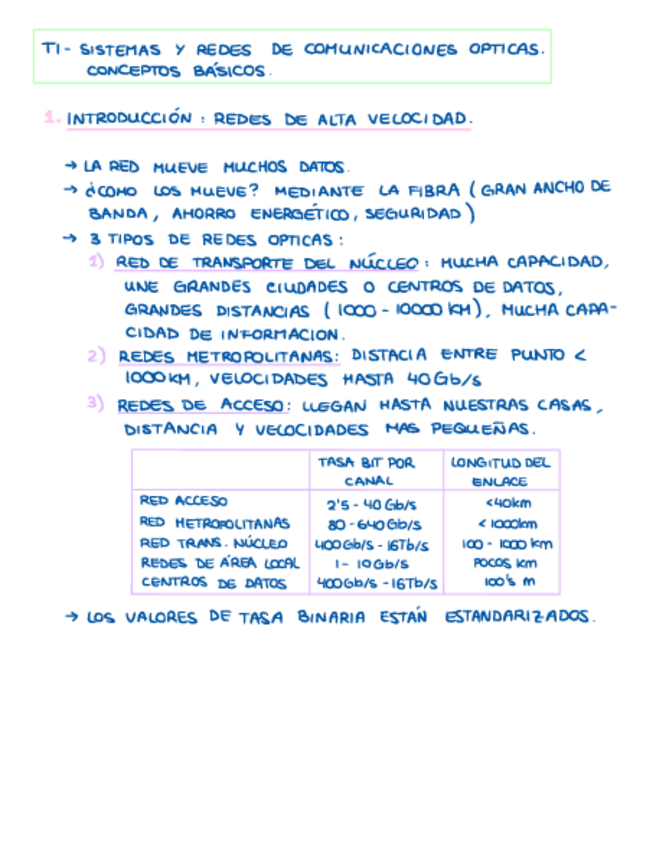 T1- SISTEMAS Y REDES DE COMUNICACIONES OPTICAS.
CONCEPTOS BÁSICOS.
1. INTRODUCCIÓN : REDES DE ALTA VELOCIDAD.
→ LA RED MUEVE MUCHOS DATOS.
→ ¿COMO LOS MUEVE? MEDIANTE LA FIBRA ( GRAN ANCHO DE
BANDA, AHORRO ENERGÉTICO, SEGURIDAD )
→ 3 TIPOS DE REDES OPTICAS :
1) RED DE TRANSPORTE DEL NÚCLEO : MUCHA CAPACIDAD,
UNE GRANDES CIUDADES O CENTROS DE DATOS,
GRANDES DISTANCIAS ( 1000 - 10000 KM ), MUCHA CAPA-
CIDAD DE INFORMACION.
2) REDES METROPOLITANAS: DISTACIA ENTRE PUNTO <
1000 KM, VELOCIDADES HASTA 40 Gb/s
3) REDES DE ACCESO : LLEGAN HASTA NUESTRAS CASAS,
DISTANCIA Y VELOCIDADES MAS PEQUEÑAS.
TASA BIT POR LONGITUD DEL
CANAL ENLACE
RED ACCESO 2'5 - 40 Gb/s <40km
RED METROPOLITANAS 80 - 640 Gb/s < 1000km
RED TRANS. NÚCLEO 400 Gb/s - 16Tb/s 100 - 1000 km
REDES DE ÁREA LOCAL 1 - 10 Gb/s POCOS km
CENTROS DE DATOS 400Gb/s - 16Tb/s 100's m
→ LOS VALORES DE TASA BINARIA ESTÁN ESTANDARIZADOS.